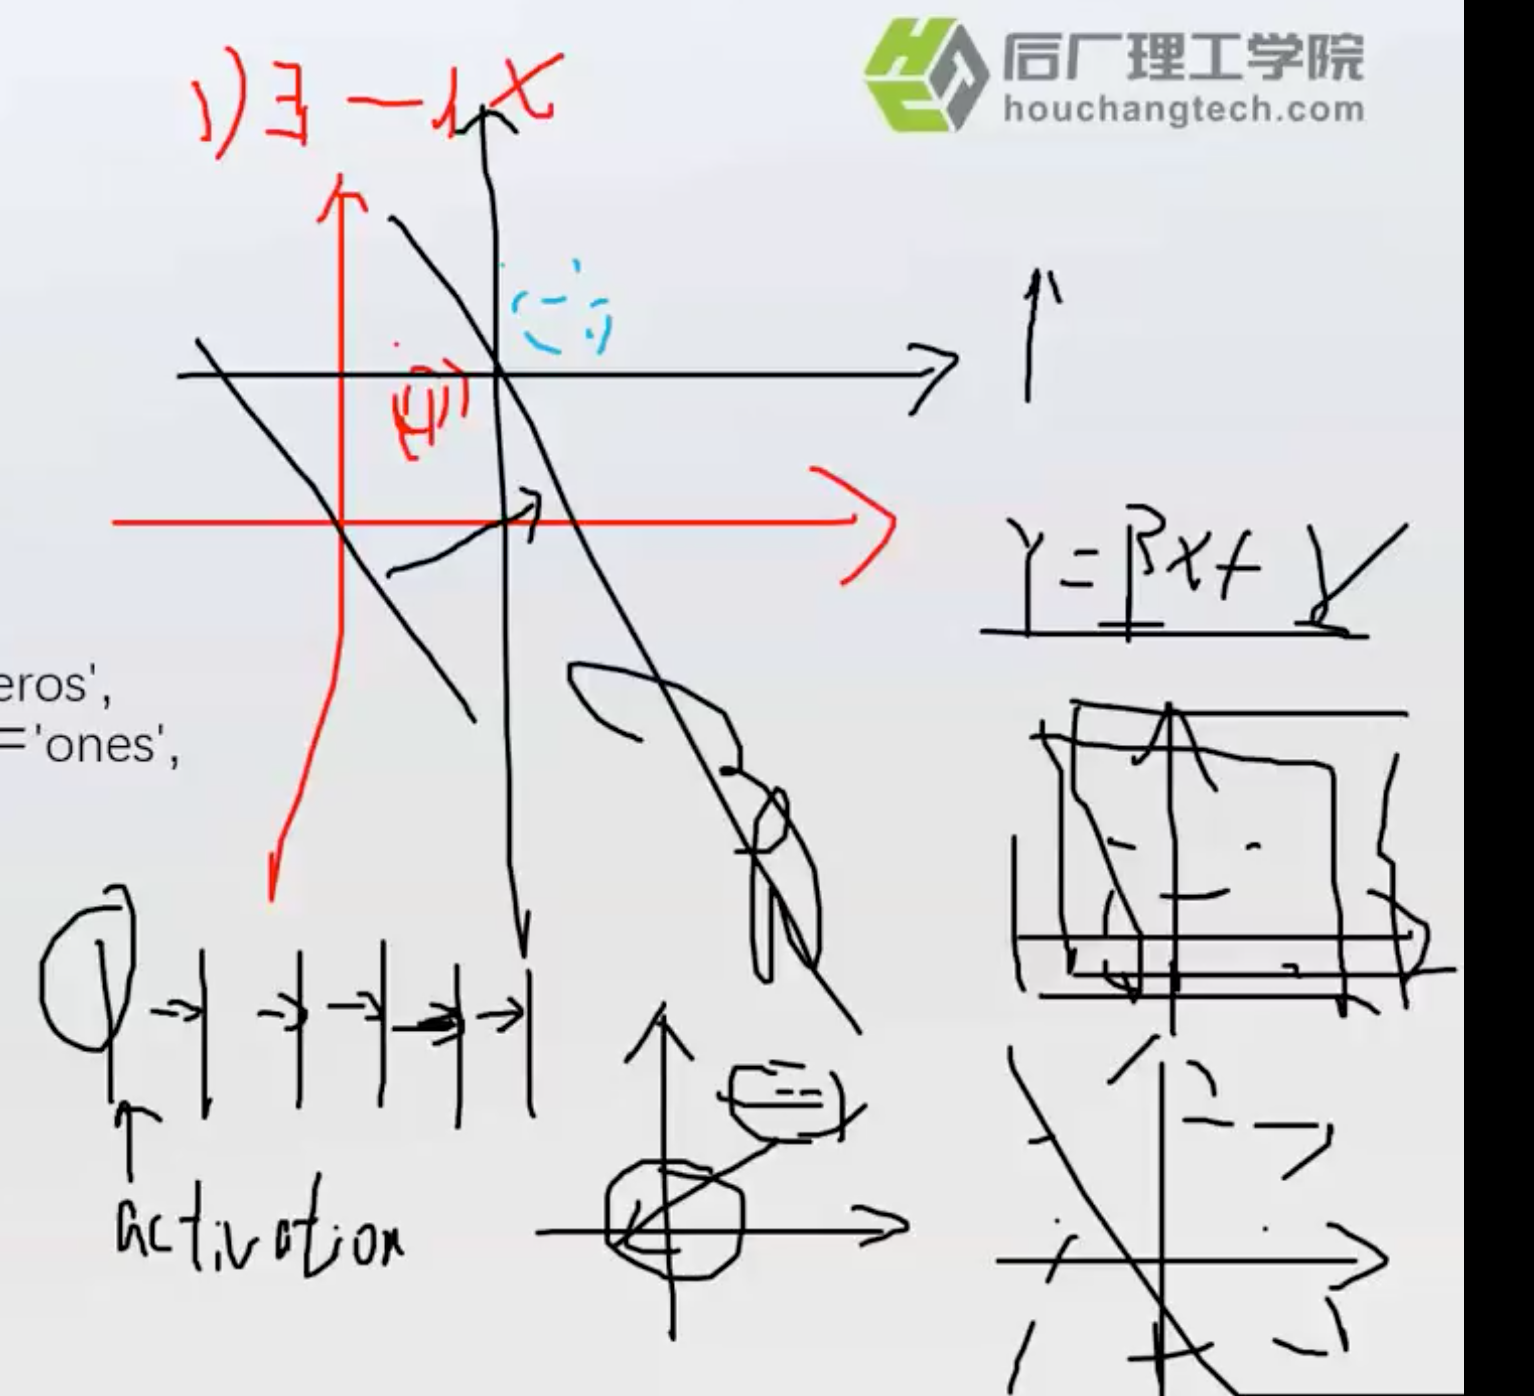 后厂理工学院
houchangtech.com
1) 归一化
Y = βx + γ
eros',
='ones',
activation